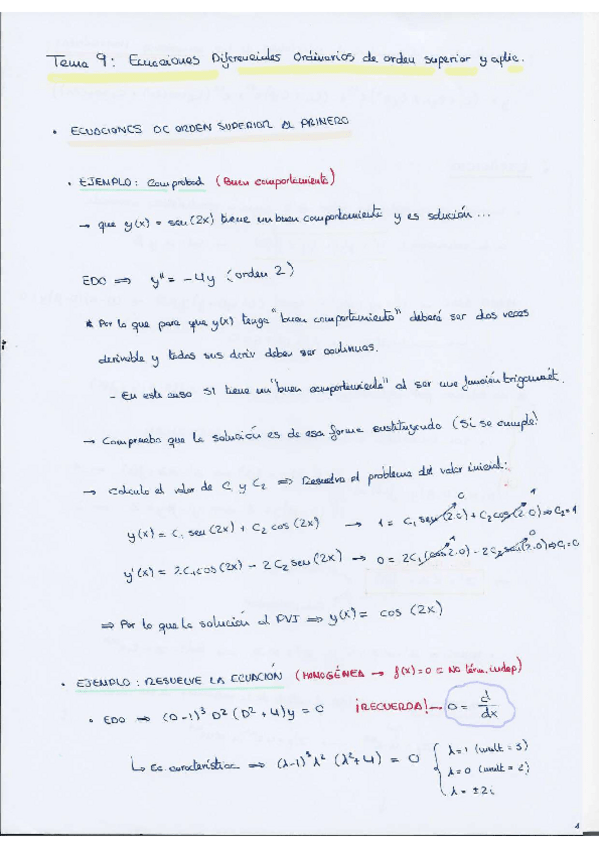 Tema 9: Ecuaciones Diferenciales Ordinarias de orden superior y aplic.
• ECUACIONES DE ORDEN SUPERIOR AL PRIMERO
• EJEMPLO: Comprobad (Buen comportamiento)
→ que y(x) = sen(2x) tiene un buen comportamiento y es solución ...
EDO ⟹ y'' = -4y (orden 2)
* Por lo que para que y(x) tenga "buen comportamiento" deberá ser dos veces
derivable y todas sus deriv deben ser continuas.
- En este caso SI tiene un "buen comportamiento" al ser una función trigonomét.
→ Comprueba que la solución es de esa forma sustituyendo (Si se cumple!
→ Calcula el valor de C₁ y C₂ ⟹ Resuelva el problema del valor inicial:
y(x) = C₁ sen(2x) + C₂ cos(2x) → 1 = C₁ sen(2·0) + C₂ cos(2·0) ⟹ C₂ = 1
y'(x) = 2C₁ cos(2x) - 2C₂ sen(2x) → 0 = 2C₁(cos 2·0) - 2C₂ sen(2·0) ⟹ C₁ = 0
⟹ Por lo que la solución al PVI ⟹ y(x) = cos(2x)
• EJEMPLO: RESUELVE LA ECUACIÓN (HOMOGÉNEA → f(x) = 0 = No térm. indep)
• EDO ⟹ (D-1)³ D² (D²+4)y = 0 ¡RECUERDA! — D = d/dx
↳ Ec característica ⟹ (λ-1)³ λ² (λ²+4) = 0 { λ = 1 (mult = 3)
λ = 0 (mult = 2)
λ = ±2i
1